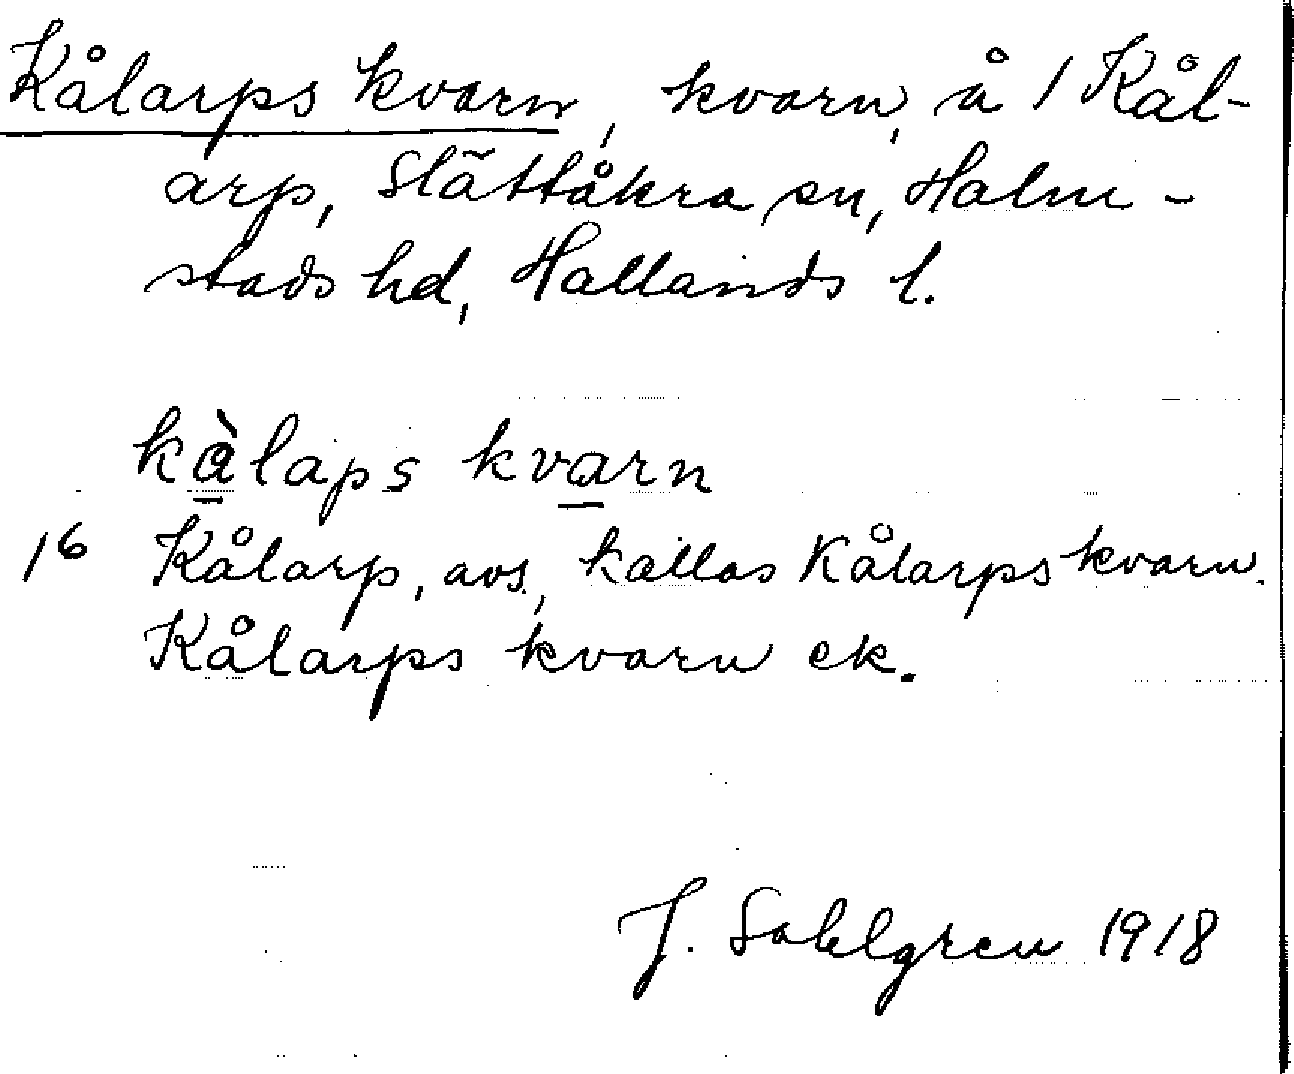 Kålarps kvarn, kvarn, å 1 Kål-
arp, Slättåkra sn, Halm-
stads hd, Hallands l.
kàlaps kvarn
16 Kålarp, avs., kallas Kålarps kvarn.
Kålarps kvarn ek.
J. Sahlgren 1918